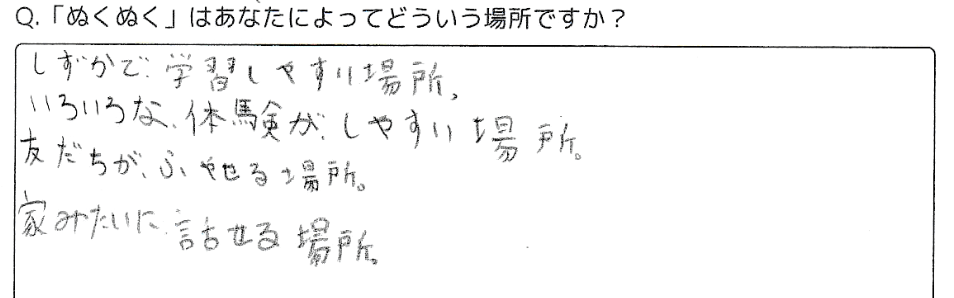 Q.「ぬくぬく」はあなたによってどういう場所ですか？
しずかで、学習しやすい場所、
いろいろな、体験が、しやすい場所。
友だちが、ふやせる場所。
家みたいに、話せる場所。